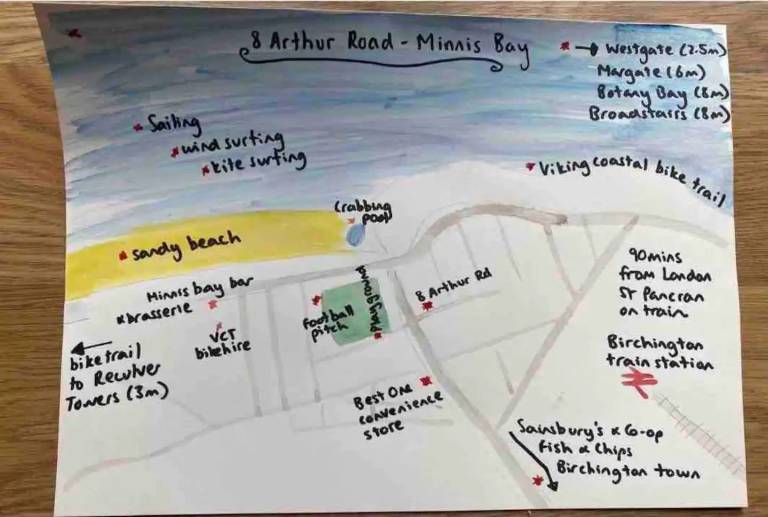 8 Arthur Road - Minnis Bay
→ Westgate (2.5m)
Margate (6m)
Botany Bay (8m)
Broadstairs (8m)
Sailing
wind surfing
kite surfing
Viking coastal bike trail
Crabbing
pool
sandy beach
Minnis bay bar
& brasserie
VCT
bikehire
football
pitch
playground
8 Arthur Rd
90mins
from London
St Pancran
on train
Birchington
train station
← bike trail
to Reculver
Towers (3m)
Best One
convenience
store
Sainsbury's & Co-op
Fish & Chips
Birchington town